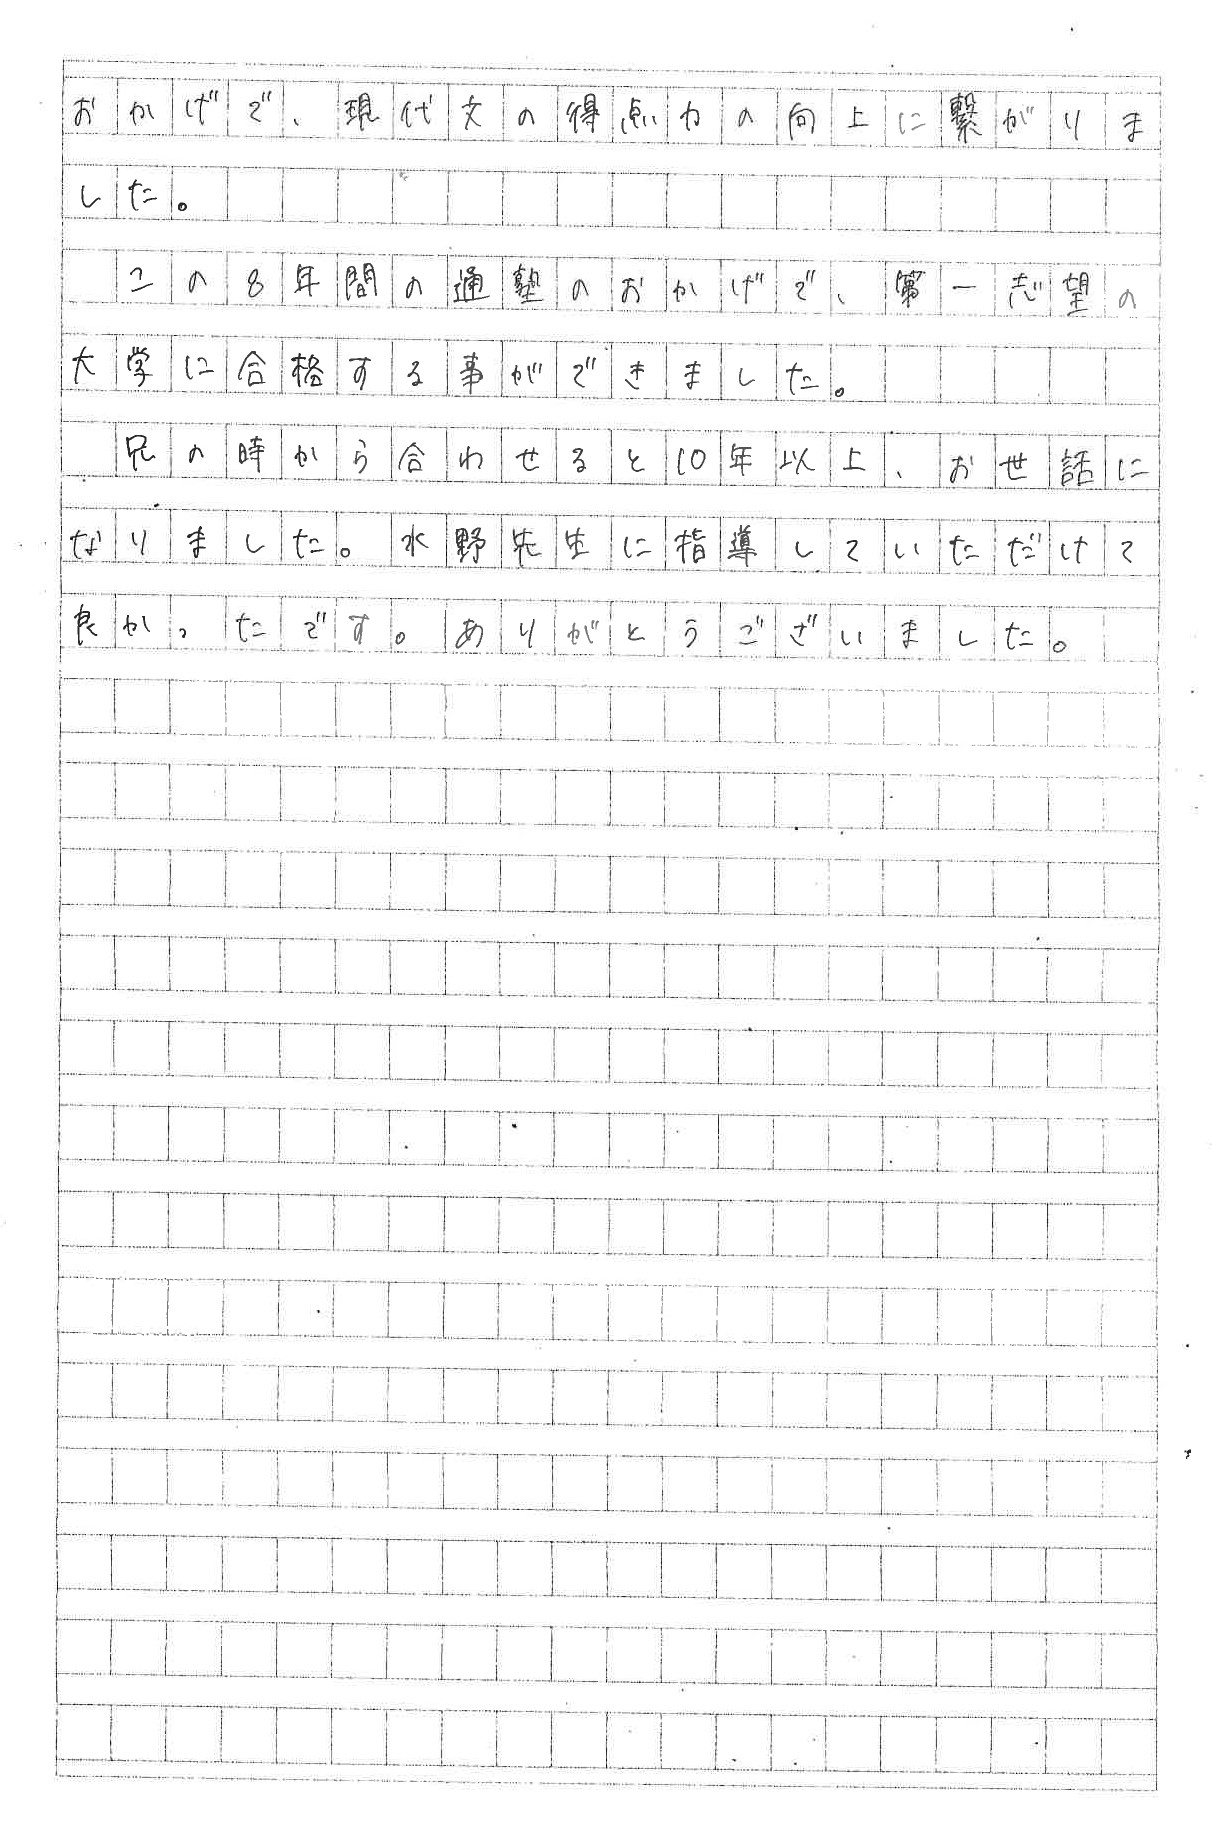 おかげで、現代文の得点力の向上に繋がりま
した。
この8年間の通塾のおかげで、第一志望の
大学に合格する事ができました。
兄の時から合わせると10年以上、お世話に
なりました。水野先生に指導していただけて
良かったです。ありがとうございました。